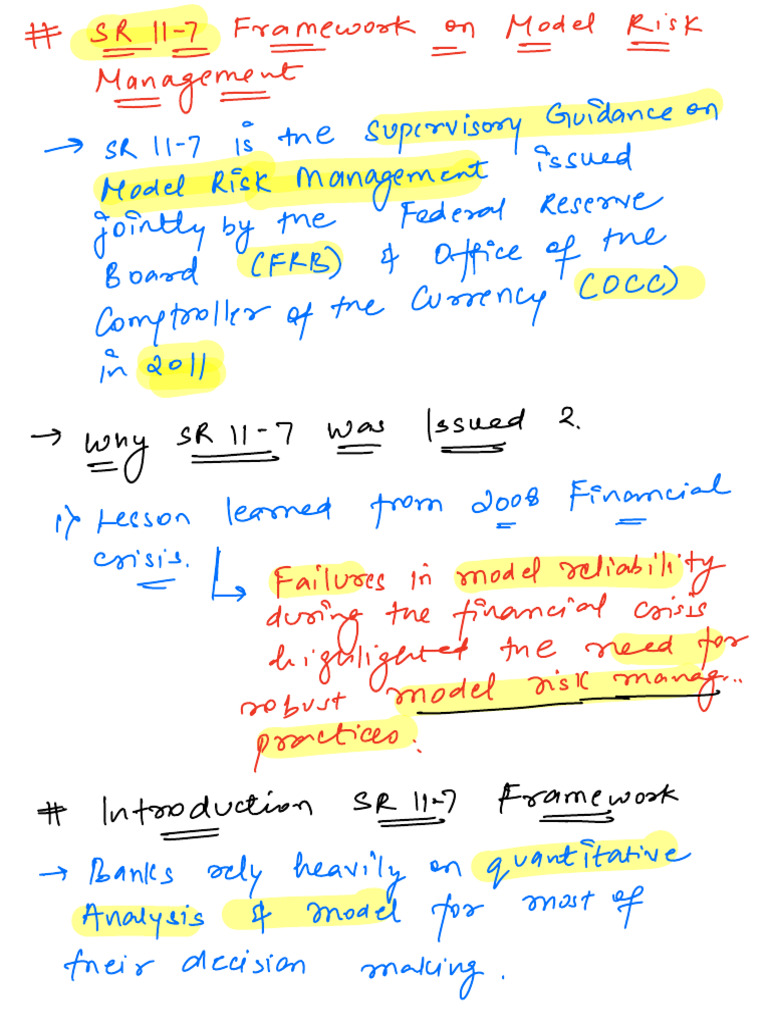 # SR 11-7 Framework on Model Risk
Management
→ SR 11-7 is the Supervisory Guidance on
Model Risk Management issued
jointly by the Federal Reserve
Board (FRB) & Office of the
Comptroller of the Currency (OCC)
in 2011
→ Why SR 11-7 was Issued ?
1) Lesson learned from 2008 Financial
crisis.
Failures in model reliability
during the financial crisis
highlighted the need for
robust model risk manag..
practices.
# Introduction SR 11-7 Framework
→ Banks rely heavily on quantitative
Analysis & model for most of
their decision making.